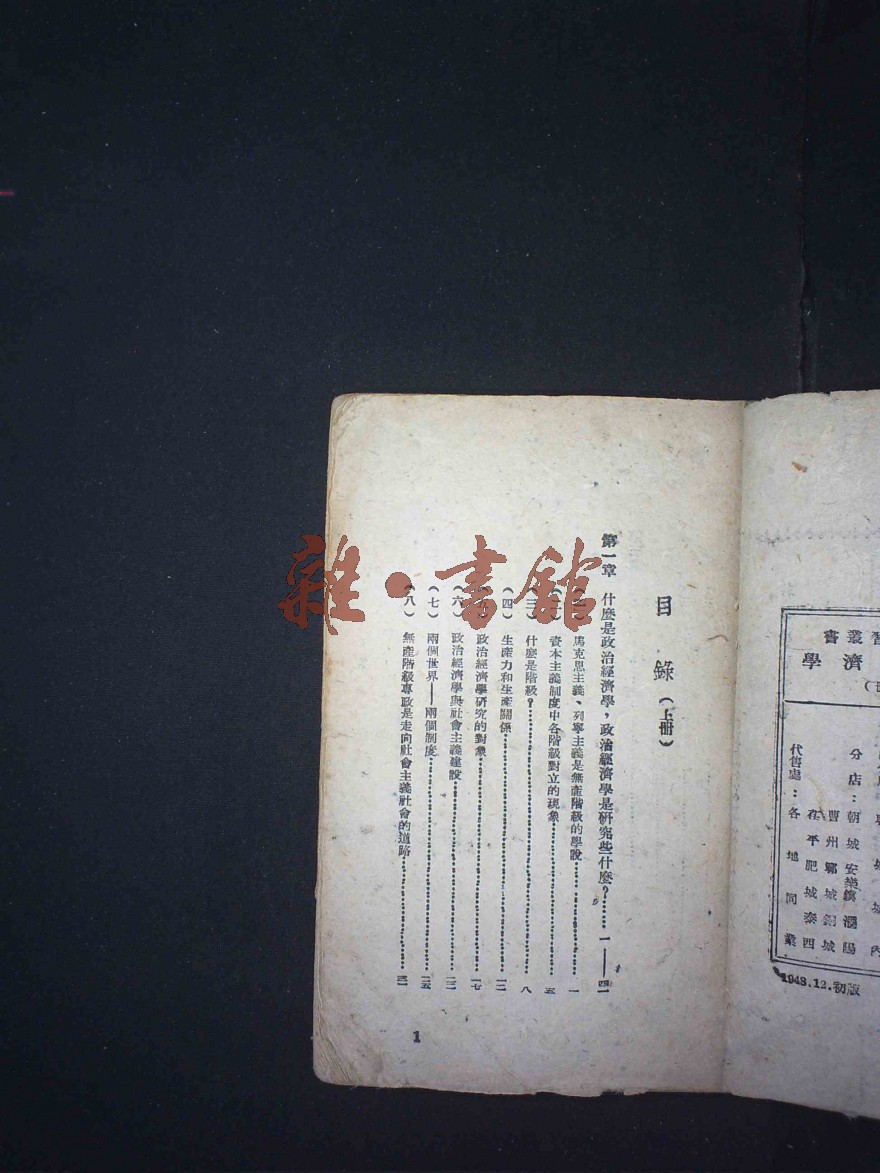 目 錄（上冊）
第一章 什麼是政治經濟學，政治經濟學是研究些什麼？……一——四一
馬克思主義、列寧主義是無產階級的學說……一
資本主義制度中各階級對立的現象……五
（三）什麼是階級？……八
（四）生產力和生產關係……一二
政治經濟學研究的對象……一七
（六）政治經濟學與社會主義建設……二二
（七）兩個世界——兩個制度……二五
（八）無產階級專政是走向社會主義社會的道路……三一
1
叢書
濟學
分店：朝城 安樂鎮 濮陽
曹州 鄆城
茌平 肥城 泰西
代售處：各地同業
1948.12.初版
雜·書館